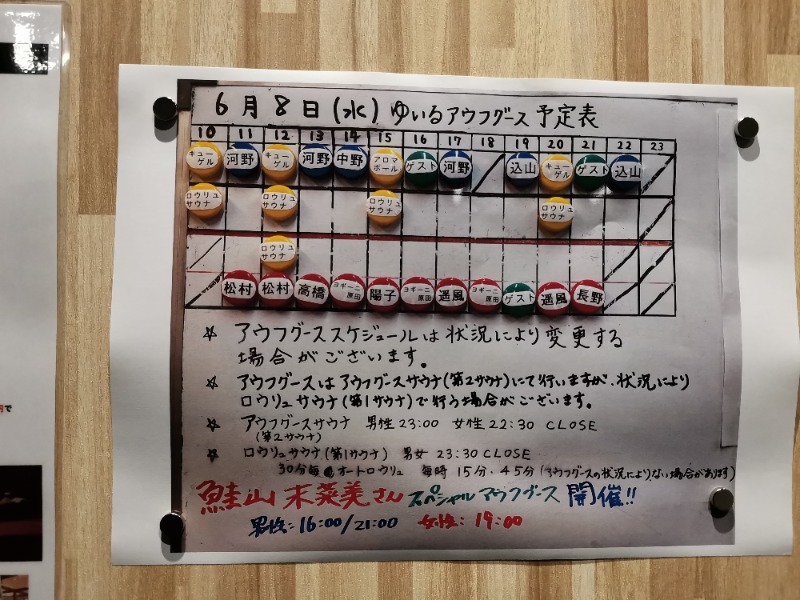 6月8日(水)ゆいるアウフグース予定表
10 11 12 13 14 15 16 17 18 19 20 21 22 23
キューゲル 河野 キューゲル 河野 中野 アロマボール ゲスト 河野 込山 キューゲル ゲスト 込山
ロウリュサウナ ロウリュサウナ ロウリュサウナ ロウリュサウナ
ロウリュサウナ
松村 松村 高橋 ヨギーニ原田 陽子 ヨギーニ原田 遥風 ヨギーニ原田 ゲスト 遥風 長野
☆ アウフグーススケジュールは状況により変更する
場合がございます。
☆ アウフグースはアウフグースサウナ(第2サウナ)にて行いますが、状況により
ロウリュサウナ(第1サウナ)で行う場合がございます。
☆ アウフグースサウナ 男性23:00 女性22:30 CLOSE
(第2サウナ)
☆ ロウリュサウナ(第1サウナ) 男女 23:30 CLOSE
30分毎 オートロウリュ 毎時15分・45分(アウフグースの状況によりない場合があります)
鮭山未菜美さんスペシャルアウフグース開催!!
男性:16:00/21:00 女性:19:00